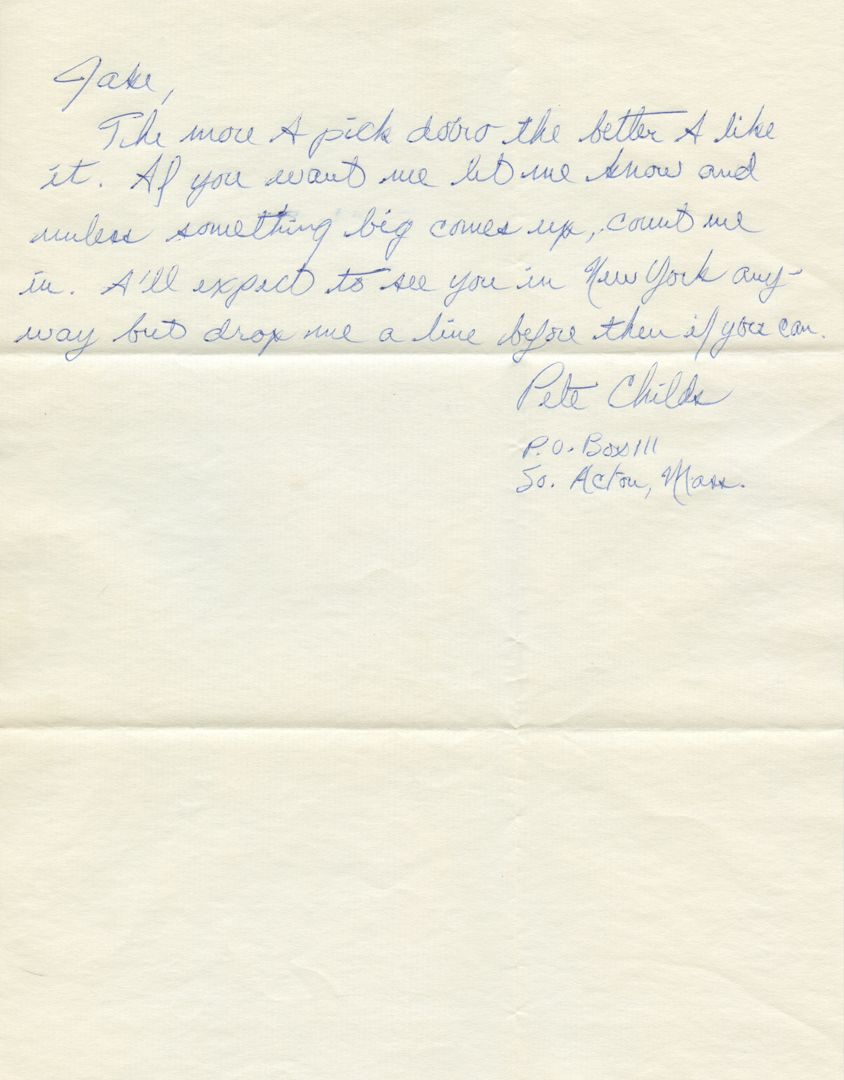 Jake,
The more I pick dobro the better I like
it. If you want me let me know and
unless something big comes up, count me
in. I'll expect to see you in New York any-
way but drop me a line before then if you can.
Pete Childs
P.O. Box 111
So. Acton, Mass.